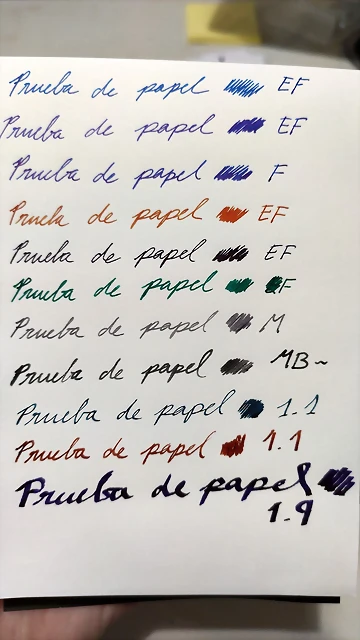 Prueba de papel EF
Prueba de papel EF
Prueba de papel F
Prueba de papel EF
Prueba de papel EF
Prueba de papel F
Prueba de papel M
Prueba de papel MB~
Prueba de papel 1.1
Prueba de papel 1.1
Prueba de papel
1.9